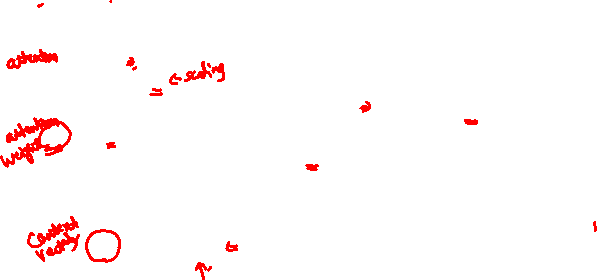 attention
← scaling
attention
weights
Context
vector